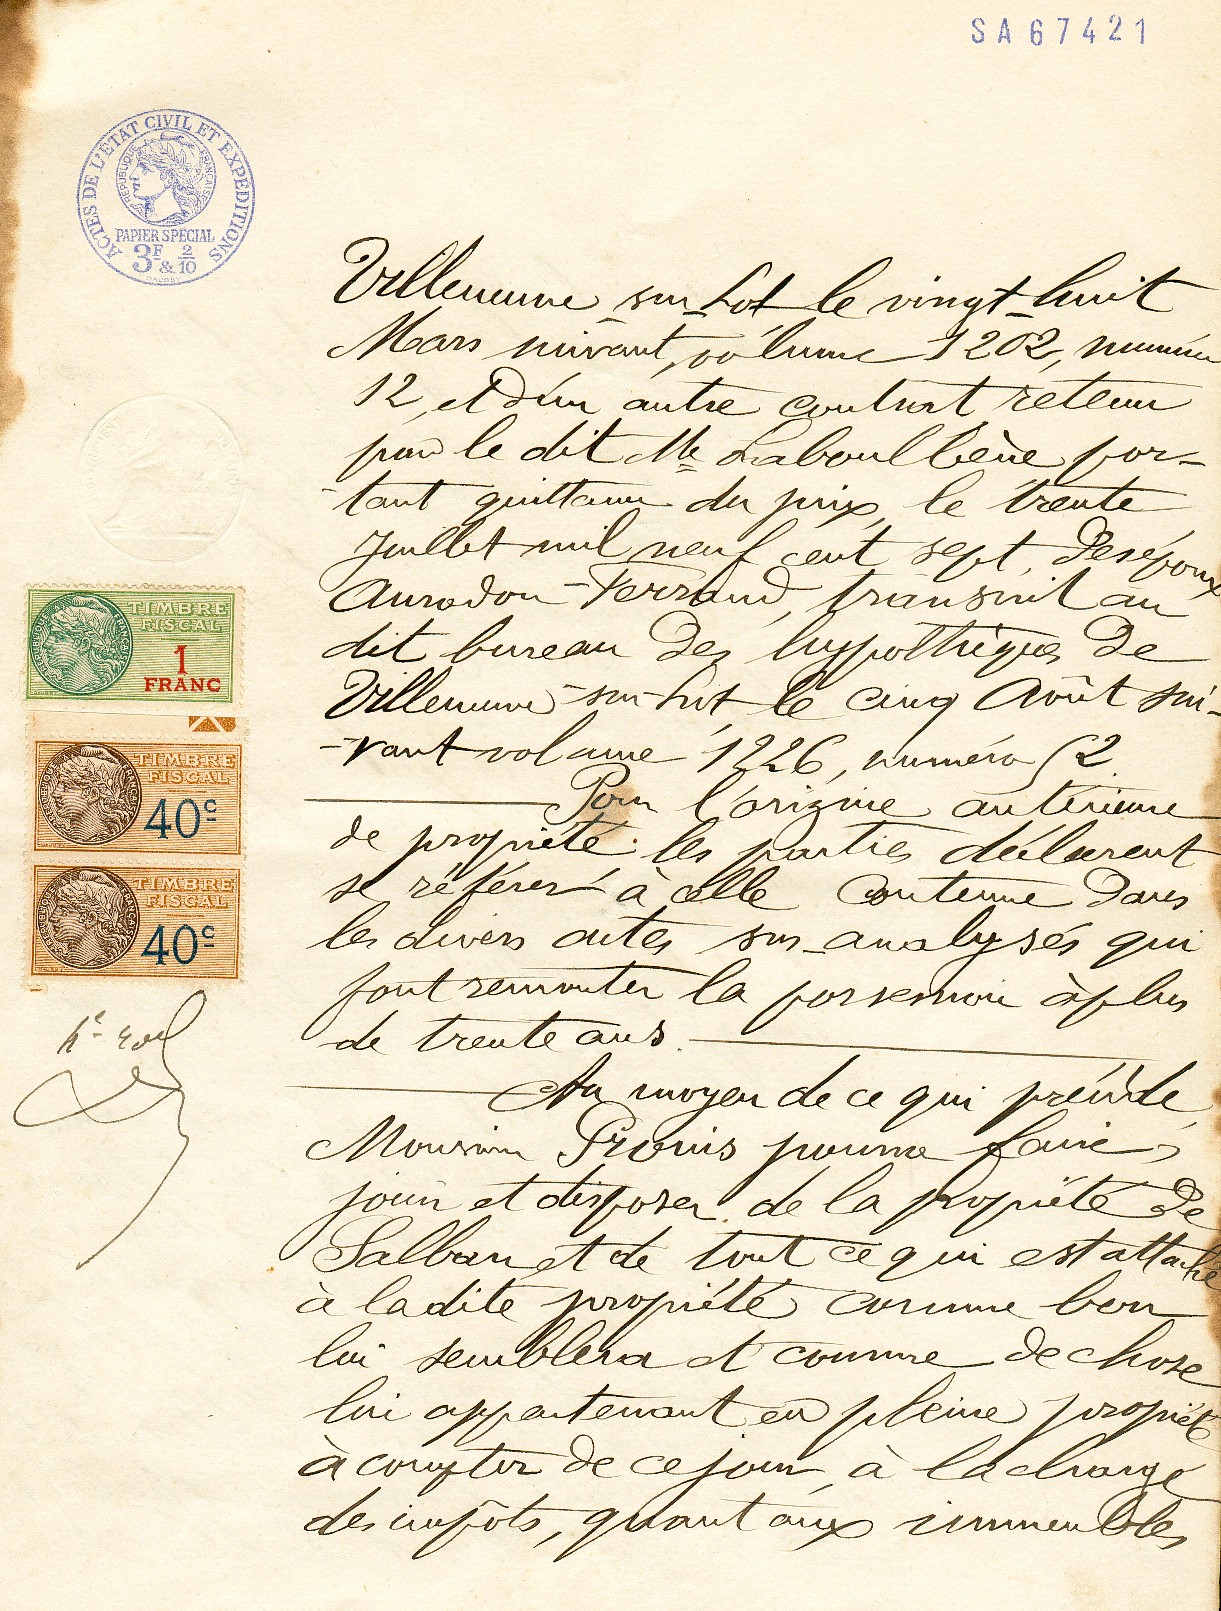 SA67421
ACTES DE L'ÉTAT CIVIL ET EXPÉDITIONS
RÉPUBLIQUE FRANÇAISE
PAPIER SPÉCIAL
3F & 2/10
Villeneuve-sur-Lot le vingt-huit
Mars suivant, volume 1202, numéro
12, et d'un autre contrat retenu
par le dit Me Laboulbène por-
-tant quittance du prix, le trente
Juillet mil neuf cent sept, des époux
Auradou-Ferrand, transcrit au
dit bureau des hypothèques de
Villeneuve-sur-Lot, le cinq Août sui-
-vant volume 1226, numéro 52.
Pour l'origine antérieure
de propriété les parties déclarent
se référer à celle contenue dans
les divers actes sus-analysés qui
font remonter la possession à plus
de trente ans.
Au moyen de ce qui précède,
Monsieur Prouis pourra faire,
jouir et disposer de la propriété de
Salban et de tout ce qui est attaché
à la dite propriété comme bon
lui semblera et comme de chose
lui appartenant en pleine propriété
à compter de ce jour, à la charge
des impôts, quant aux immeubles
TIMBRE
FISCAL
1
FRANC
TIMBRE
FISCAL
40c
TIMBRE
FISCAL
40c